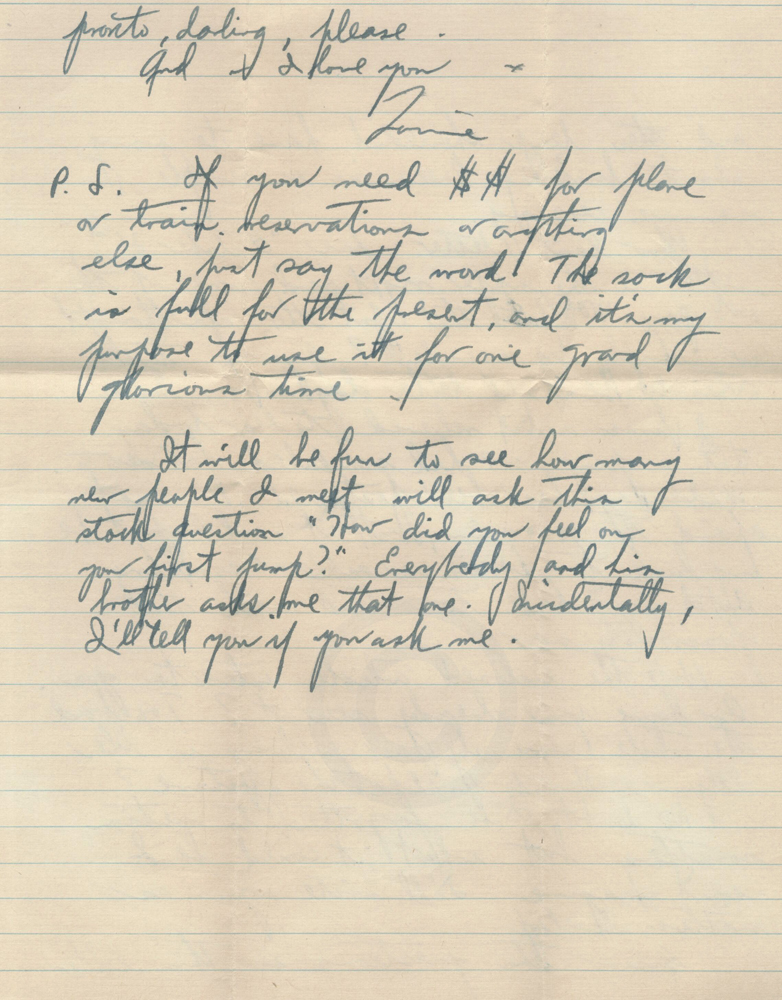 pronto, darling, please.
And I love you x
P.S. If you need $$ for plane
or train reservations or anything
else, just say the word. The sock
is full for the present, and it's my
purpose to use it for one grand
glorious time.
It will be fun to see how many
new people I meet will ask this
stock question "How did you feel on
your first jump?" Everybody and his
brother asks me that one. Incidentally,
I'll tell you if you ask me.